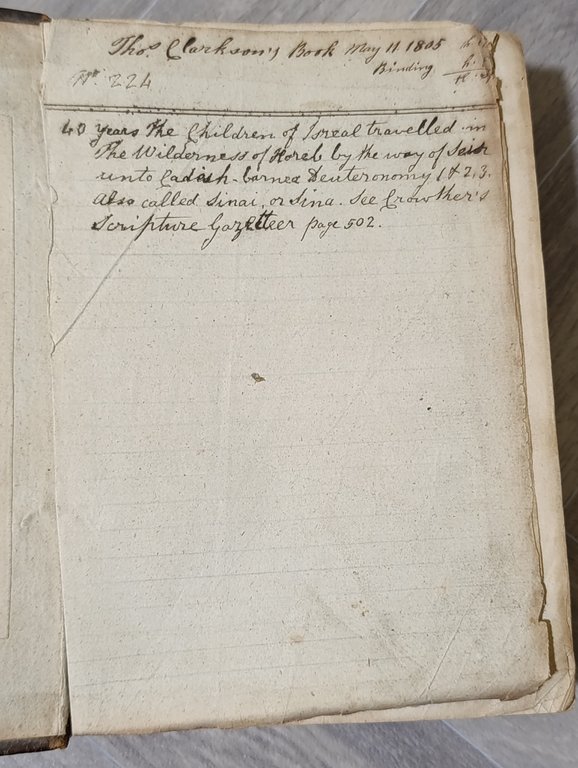 Thos. Clarkson's Book May 11 1805
Binding
No 224
40 years the Children of Isreal travelled in
The Wilderness of Horeb by the way of Seir
unto Cadish. barnea Deuteronomy 1 & 2, 3.
also called Sinai, or Sina. See Crowther's
Scripture Gazetteer page 502.